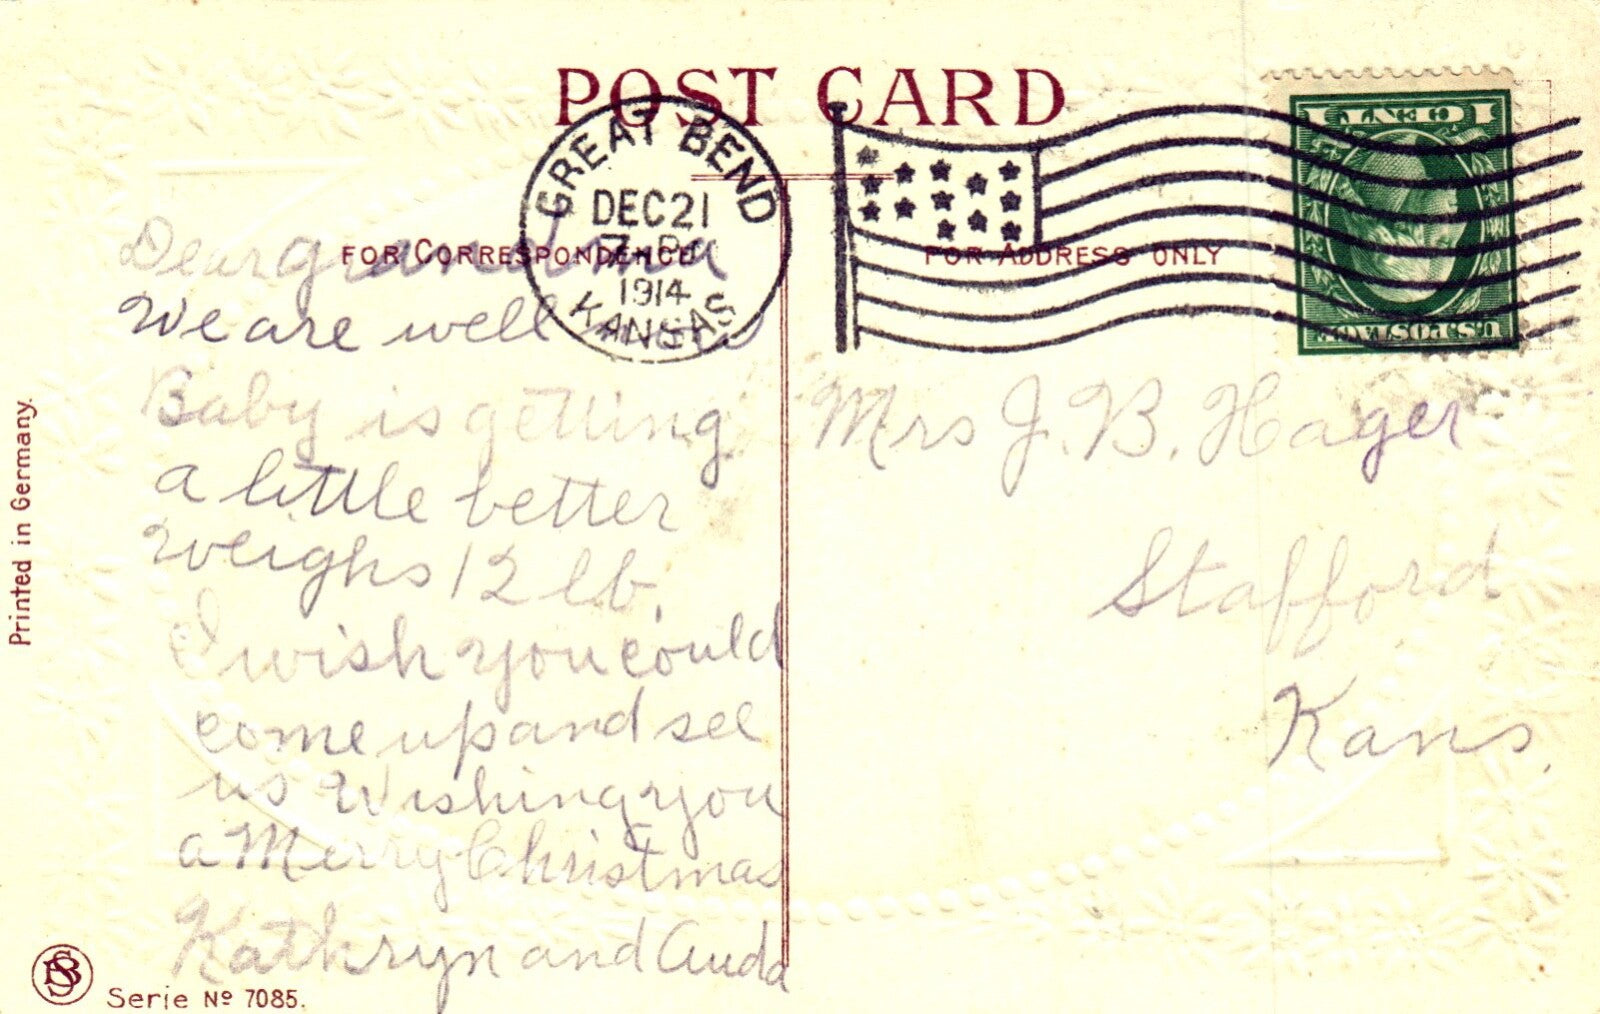 POST CARD
GREAT BEND
DEC 21
7 - P
1914
KANSAS
1 CENT 1
U.S. POSTAGE
FOR CORRESPONDENCE
FOR ADDRESS ONLY
Dear grandma
We are well
Baby is getting
a little better
weighs 12 lb.
I wish you could
come up and see
us Wishing you
a Merry Christmas
Kathryn and Auda
Mrs J. B. Hager
Stafford
Kans.
Printed in Germany.
SB
Serie No 7085.